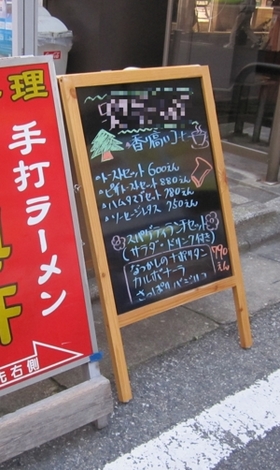 理
手打ラーメン
先右側
香り高いコーヒー
・トーストセット 600えん
・ピザトーストセット 880えん
・ハムタマゴセット 780えん
・ソーセージレタス 750えん
スパゲティランチセット
(サラダ・ドリンク付き)
なつかしのナポリタン
カルボナーラ
さっぱり
990えん